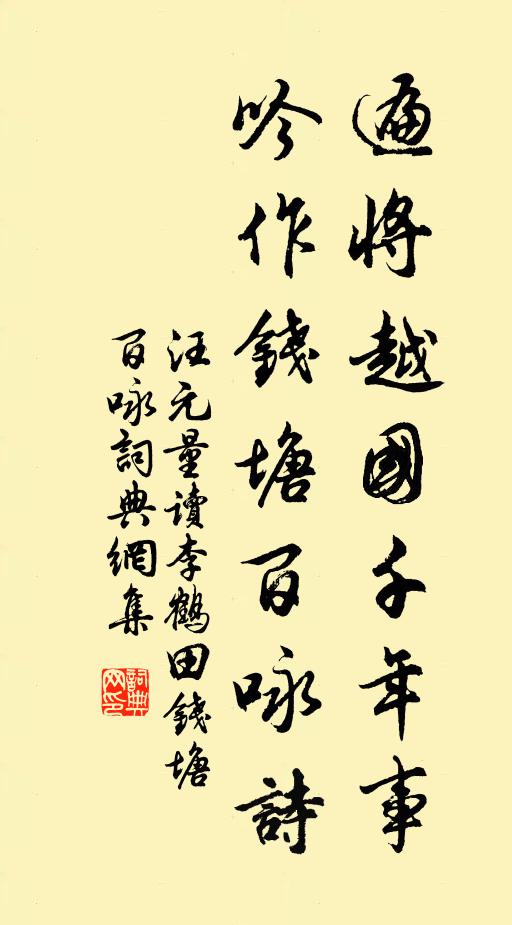 遍將越國千年事
吟作錢塘百咏詩
汪元量讀李鶴田錢塘
百咏詞典網集
詞典網印